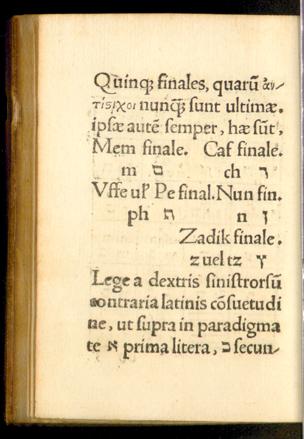 Quinqꝫ finales, quarũ ἀν/
τίϛιχοι nunqꝫ sunt ultimæ.
ipsæ autẽ semper, hæ sũt,
Mem finale. Caf finale.
m ם ch ך
Vffe uľ Pe final. Nun fin.
ph n ן
Zadik finale.
z uel tz ץ
Lege a dextris sinistrorsũ
contraria latinis cõsuetudi
ne, ut supra in paradigma
te א prima litera, ב secun/